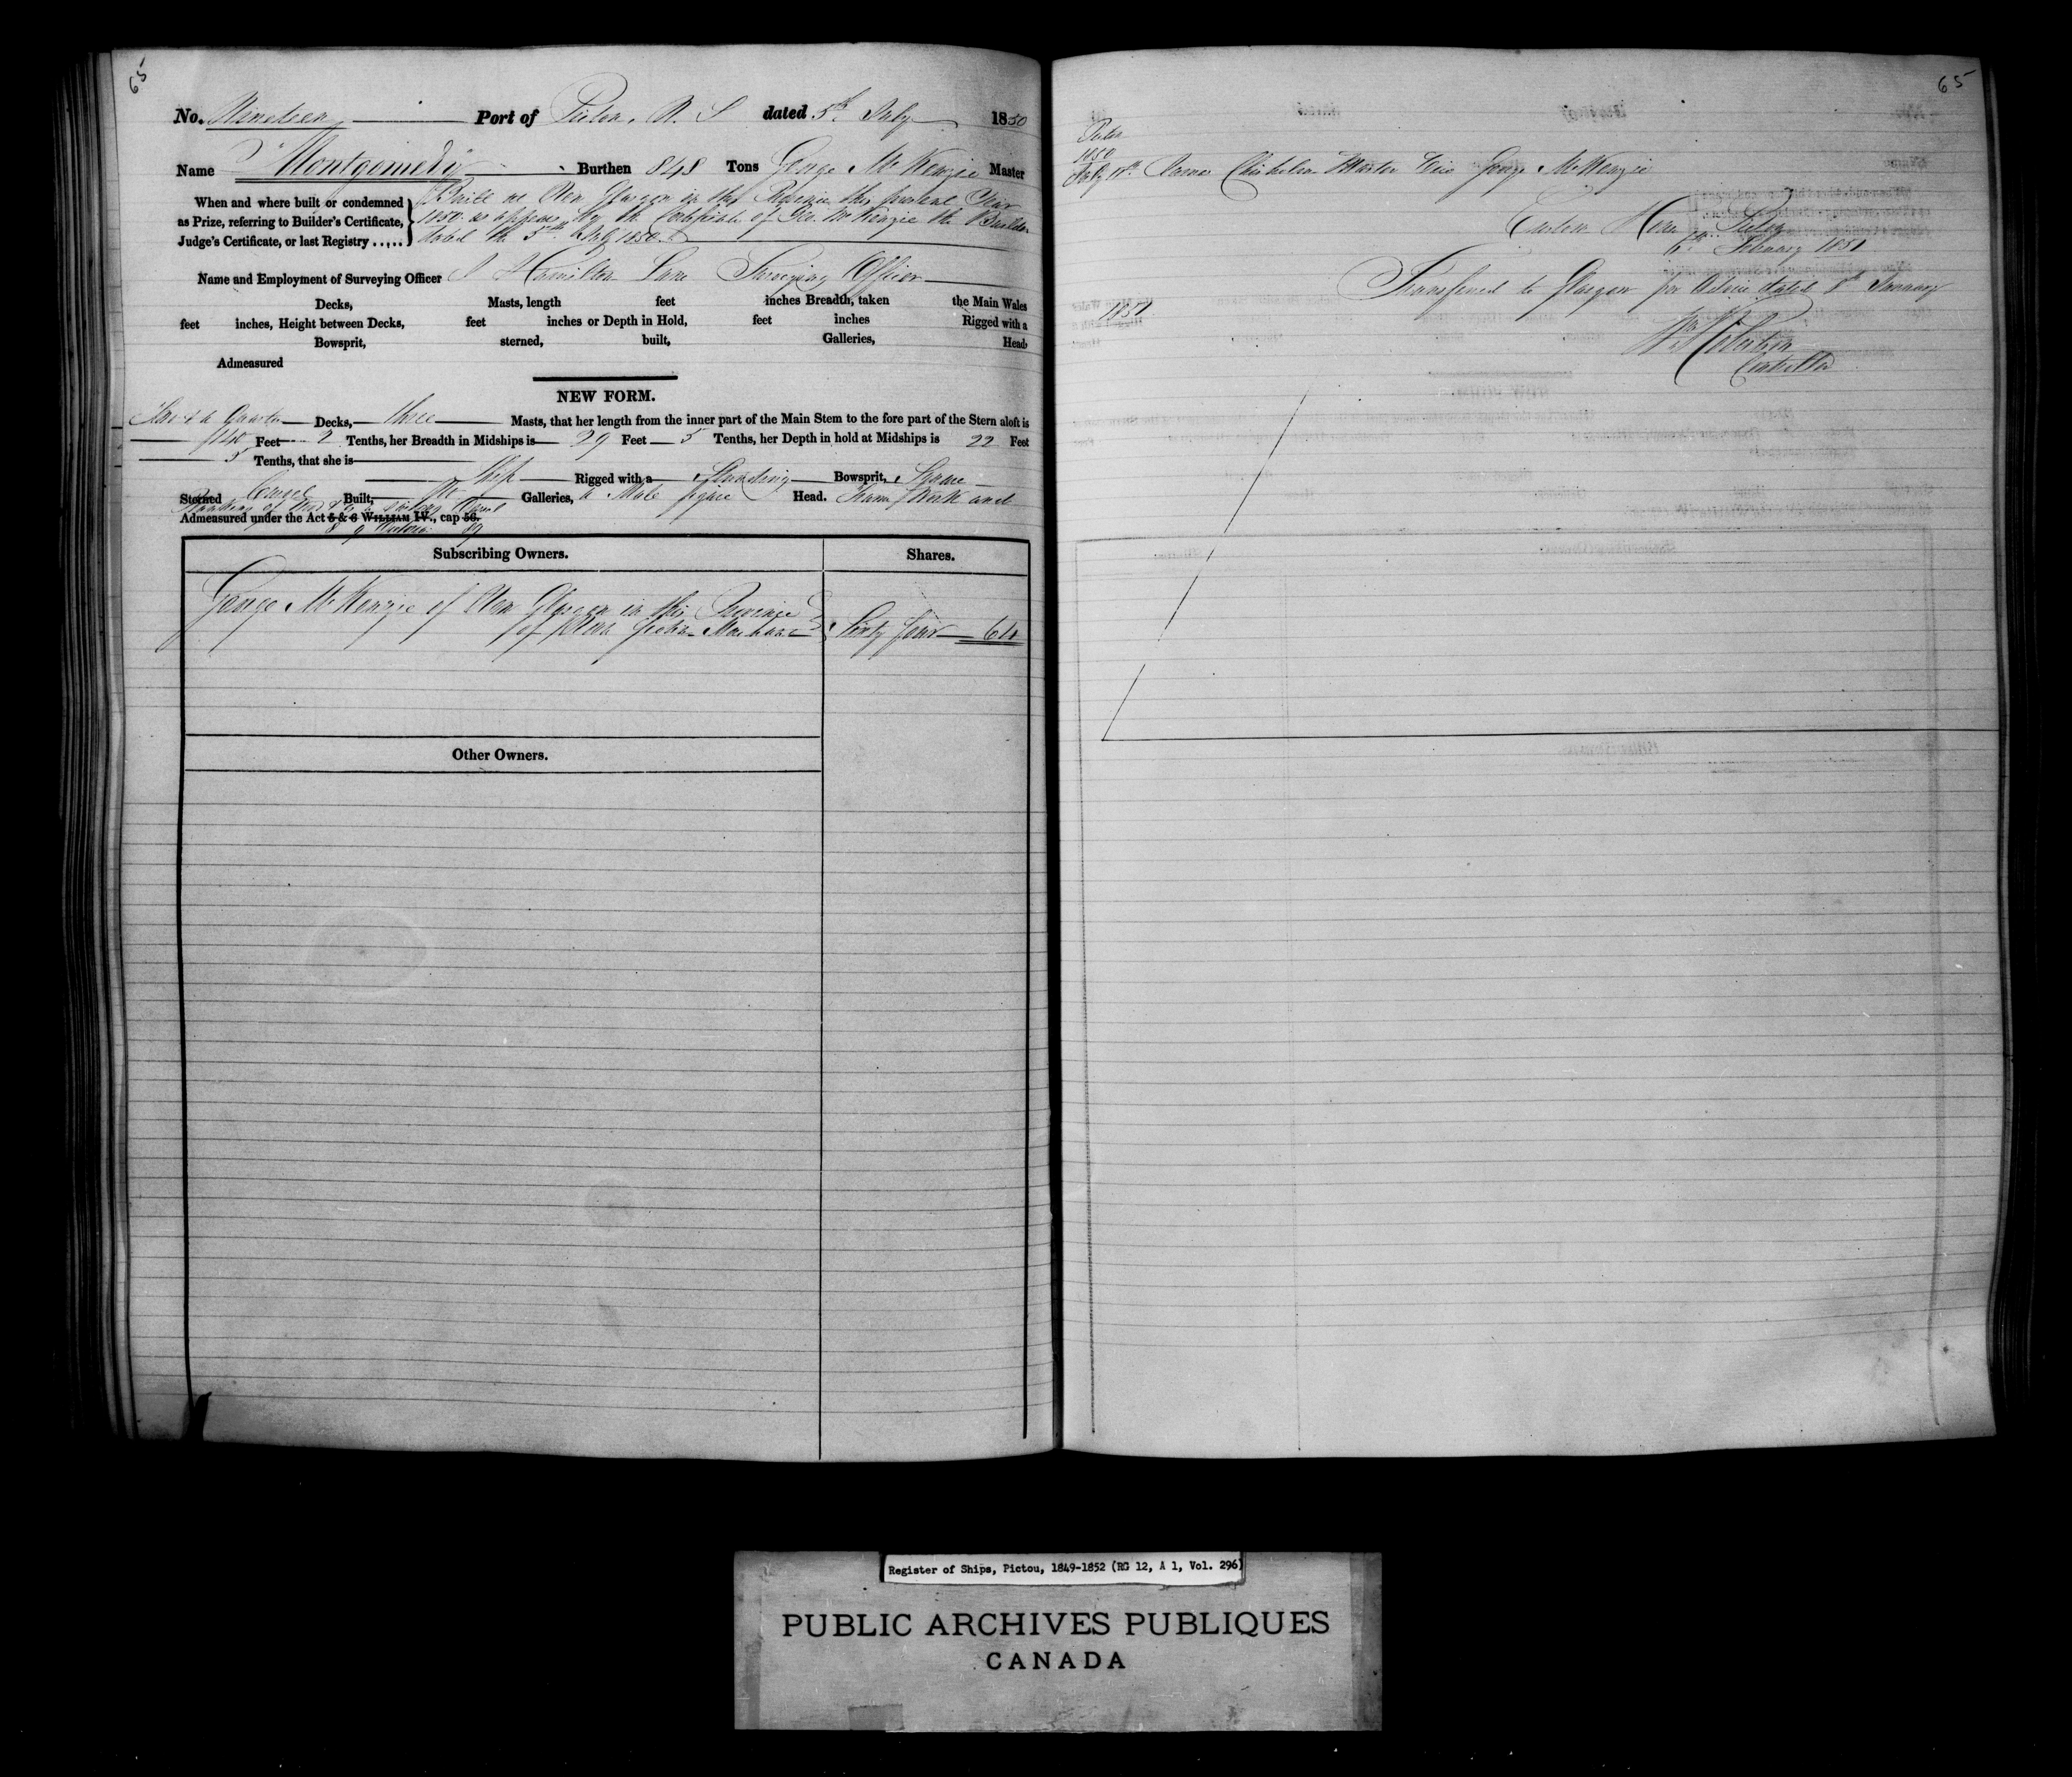 65
No. Nineteen Port of Pictou, N. S dated 5th July 1850
Name "Montgomery" Burthen 848 Tons George McKenzie Master
When and where built or condemned
as Prize, referring to Builder's Certificate,
Judge's Certificate, or last Registry .....
Built at New Glasgow in this Province this present Year
1850 as appears by the Certificate of Geo. McKenzie the Builder
dated the 5th July 1850.
Name and Employment of Surveying Officer Hamilton Lane Surveying Officer
Decks, Masts, length feet inches Breadth, taken the Main Wales
feet inches, Height between Decks, feet inches or Depth in Hold, feet inches Rigged with a
Bowsprit, sterned, built, Galleries, Head,
Admeasured
NEW FORM.
& a Quarter Decks, three Masts, that her length from the inner part of the Main Stem to the fore part of the Stern aloft is
140 Feet 2 Tenths, her Breadth in Midships is 29 Feet 5 Tenths, her Depth in hold at Midships is 22 Feet
5 Tenths, that she is
Ship Rigged with a Standing Bowsprit, Square
Sterned Carvel Built, No Galleries, a Male figure Head. Frame Work and
Planking of Wood & is a sailing Vessel
Admeasured under the Act 5 & 6 WILLIAM IV., cap 56.
8 & 9 Victoria 89
Subscribing Owners. Shares.
George McKenzie of New Glasgow in this Province
of Nova Scotia Merchant Sixty four 64
Other Owners.
65
Pictou
1850
July James Chisholm Master Vice George McKenzie
Custom House Pictou
6th February 1851
Transferred to Glasgow per Advice dated 8th January
1851
Wm Robertson
Controller
Register of Ships, Pictou, 1849-1852 (RG 12, A 1, Vol. 296)
PUBLIC ARCHIVES PUBLIQUES
CANADA